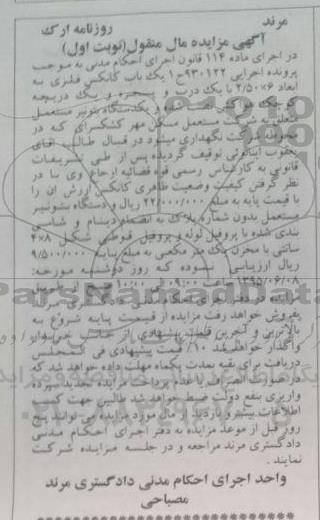 مرند
روزنامه ارک
آگهی مزایده مال منقول(نوبت اول)
در اجرای ماده ۱۱۴ قانون اجرای احکام مدنی به موجب
پرونده اجرایی ۹۳۰۱۲۲ج۱ یک باب کانکس فلزی به
ابعاد ۶×۲/۵۰ با یک درب و پنجره و یک دریچه
کوچک هواکش و یکدستگاه بونیر مستعمل
متعلق به شرکت مستعمل مسکن مهر کشکسرای که در
محوطه شرکت نگهداری میشود در قبال طلب آقای
یعقوب توقیف گردیده پس از طی تشریفات
قانونی به کارشناس رسمی قوه قضائیه ارجاع وی با در
نظر گرفتن کیفیت وضعیت ظاهری کانکس ارزش آن را
با قیمت پایه به مبلغ ۲۲/۰۰۰/۰۰۰ ریال و دستگاه
مستعمل بدون شماره پلاک به انضمام دینام و شاسی
بندی شده با پروفیل لوله و پروفیل قوطی شکل ۸×۴
سانتی با مخزن یک متر مکعبی به مبلغ پایه ۹/۵۰۰/۰۰۰
ریال ارزیابی نموده که روز دوشنبه مورخه:
۱۳۹۵/۰۶/۰۸ ساعت ۰۹:۰۰ الی ۱۰:۰۰
دفتر اجرای احکام
بفروش خواهد رفت مزایده از قیمت پایه شروع به
بالاترین و آخرین قیمت پیشنهادی از جانب خریدار
واگذار خواهد شد ۱۰٪ قیمت پیشنهادی فی المجلس
دریافت برای بقیه بمدت یکماه مهلت داده خواهد شد که
در صورت انصراف یا عدم پرداخت مزایده تجدید سپرده
واریزی بنفع دولت ضبط خواهد شد طالبین جهت کسب
اطلاعات بیشتر و بازدید از مال مورد مزایده می توانند پنج
روز قبل از موعد مزایده به دفتر اجرای احکام مدنی
دادگستری مرند مراجعه و در جلسه مزایده شرکت
نمایند .
واحد اجرای احکام مدنی دادگستری مرند
مصباحی